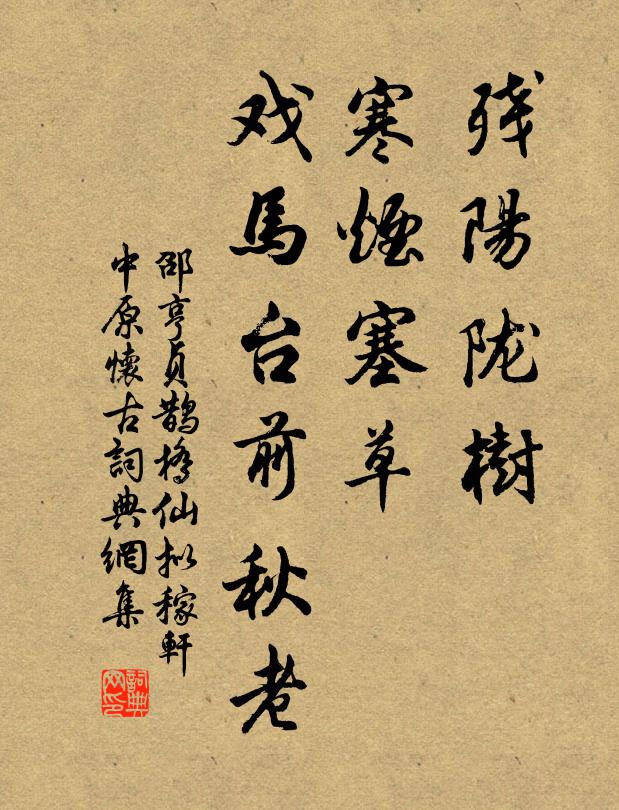 残陽陇樹
寒煙塞草
戏馬台前秋老
邵亨貞鵲橋仙拟稼軒
中原懷古詞典網集
詞典
网印